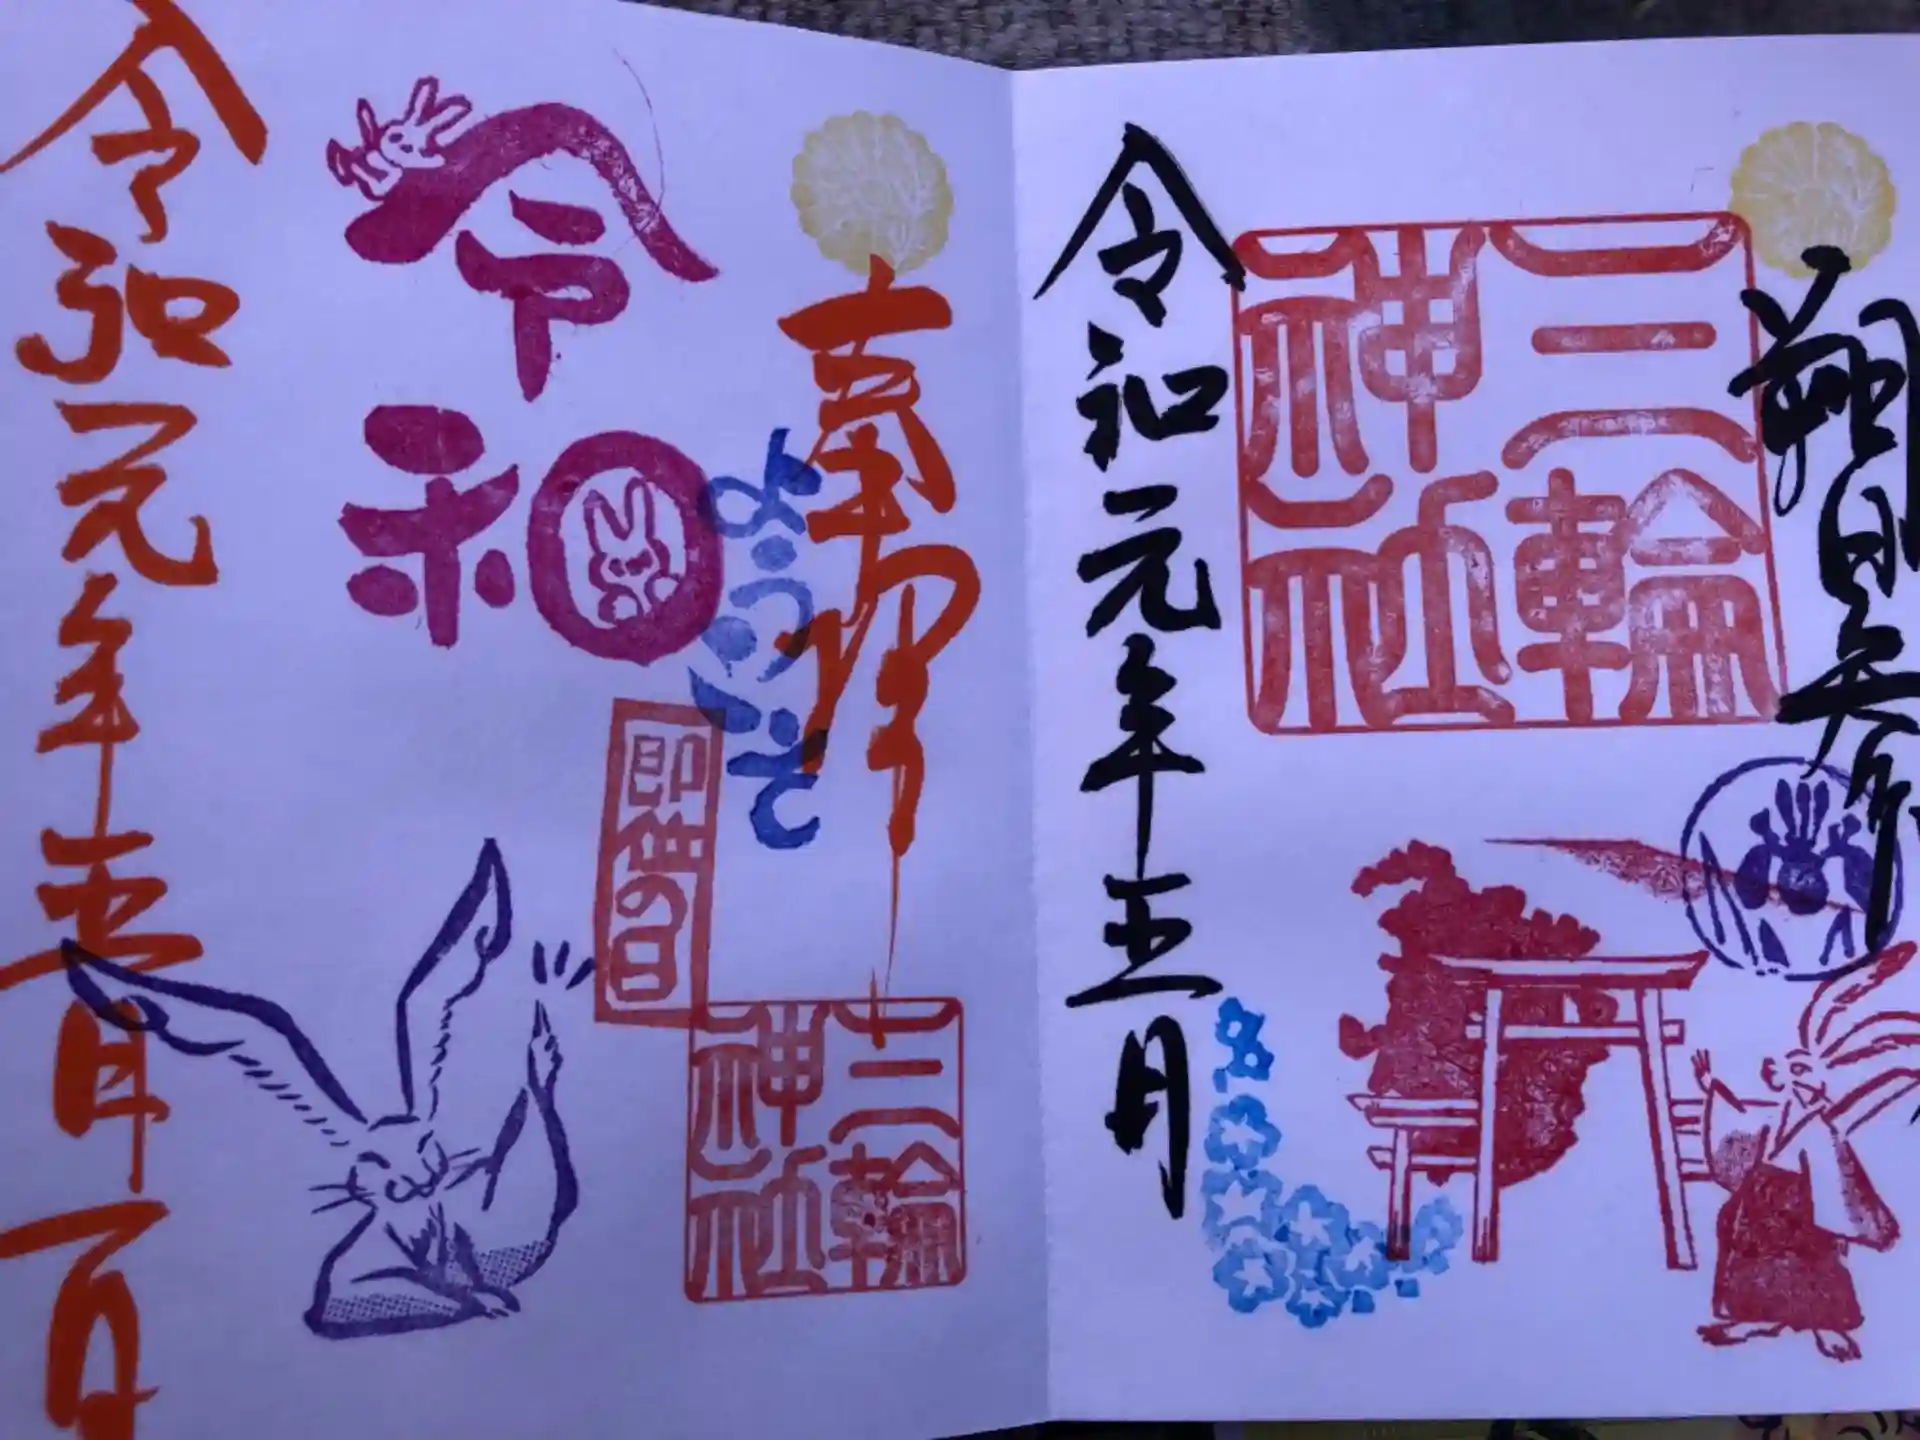 朔日参
三輪
神社
令和元年五月
奉拝
ようこそ
三輪
神社
令
和
令和元年五月一日